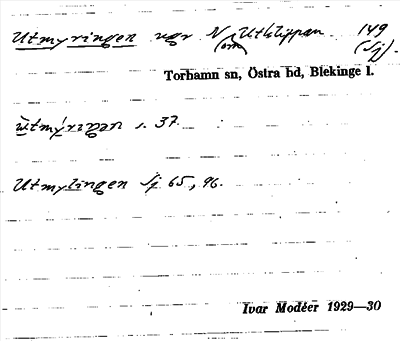 Utmyringen vgr N om Utklippan. 149 (Sj).
Torhamn sn, Östra hd, Blekinge l.
ùtmýriŋən s. 37.
Utmylingen Sj 65, 96.
Ivar Modéer 1929—30